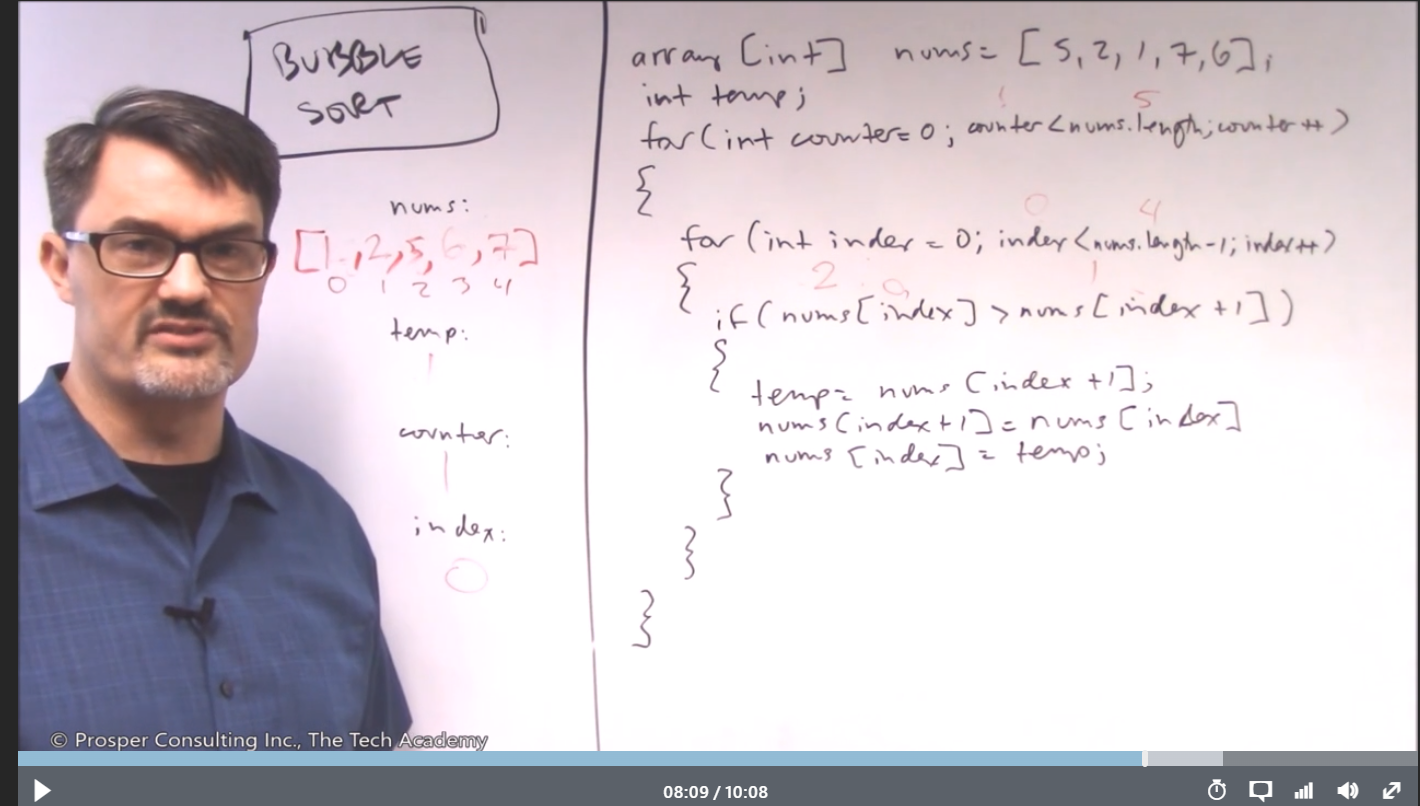 BUBBLE
SORT
nums:
[1,2,5,6,7]
0 1 2 3 4
temp:
1
counter:
1
index:
0
array [int] nums= [5,2,1,7,6];
int temp;
1 5
for(int counter=0; counter<nums.length;counter++)
{
0 4
for (int index = 0; index<nums.length-1; index++)
{
2 0 1
if(nums[index] > nums[index +1])
{
temp= nums [index +1];
nums[index+1] = nums [index]
nums [index] = temp;
}
}
}
© Prosper Consulting Inc., The Tech Academy
08:09 / 10:08